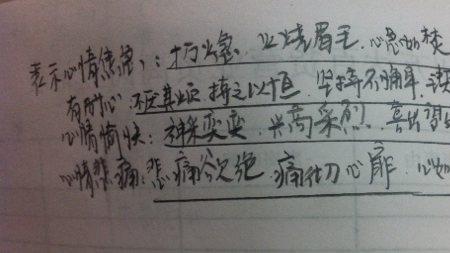 表示心情焦急：十万火急．火烧眉毛．心急如焚
有耐心 不厌其烦 持之以恒．坚持不
心情愉快：神采奕奕．兴高采烈．喜出望
心情悲痛：悲痛欲绝．痛彻心扉．心如